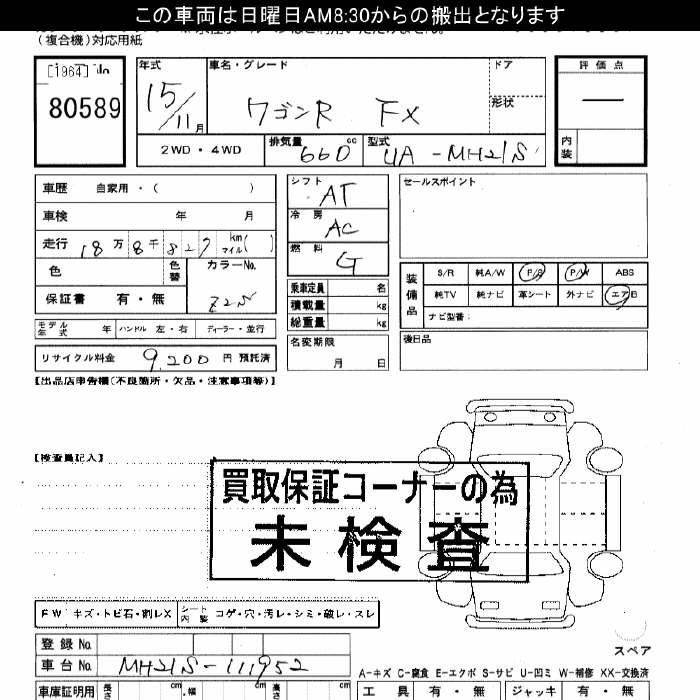 この車両は日曜日AM8:30からの搬出となります
(複合機)対応用紙
[1964]
80589
年式
15/11月
車名・グレード
ワゴンR FX
ドア
形状
評価点
—
内装
2WD・4WD
排気量 660 cc
型式 UA-MH21S
車歴 自家用・( )
車検 年 月
走行 18万8千827 km マイル( )
色
色替
カラーNo.
Z2S
保証書 有・無
モデル年式 年 ハンドル 左・右 ディーラー・並行
リサイクル料金 9,200 円 預託済
シフト AT
冷房 AC
燃料 G
乗車定員 名
積載量 kg
総重量 kg
名変期限
月 日
セールスポイント
装備品
S/R 純A/W P/S P/W ABS
純TV 純ナビ 革シート 外ナビ エアB
ナビ型番:
後日品
【出品店申告欄(不良箇所・欠品・注意事項等)】
【検査員記入】
買取保証コーナーの為
未検査
FW キズ・トビ石・割レX
シート内装 コゲ・穴・汚レ・シミ・破レ・スレ
スペア
登録No.
車台No. MH21S-111952
A-キズ C-腐食 E-エクボ S-サビ U-凹ミ W-補修 XX-交換済
車庫証明用 長さ cm 幅 cm 高さ cm
工具 有・無 ジャッキ 有・無